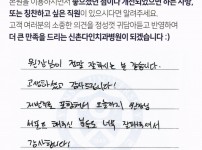 본원을 이용하시면서 좋았었던 점이나 개선되었으면 하는 사항,
또는 칭찬하고 싶은 직원이 있으시다면 알려주세요.
고객 여러분의 소중한 의견을 정성껏 귀담아듣고 반영하여
더 큰 만족을 드리는 신촌다인치과병원이 되겠습니다 :)
원장님이 정말 잘해주시는 분 같습니다.
고생하셨고 감사드립니다!
치료
서포트 해주신 분들도 너무 잘해주셔서
감사합니다!